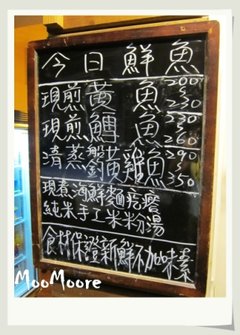 今日鮮魚
現煎黃魚 200~230
現煎鯛魚 230~260
清蒸 魚 290~350
現煮海鮮麵疙瘩
純米手工米粉湯
食材保證新鮮不加味素
MooMoore